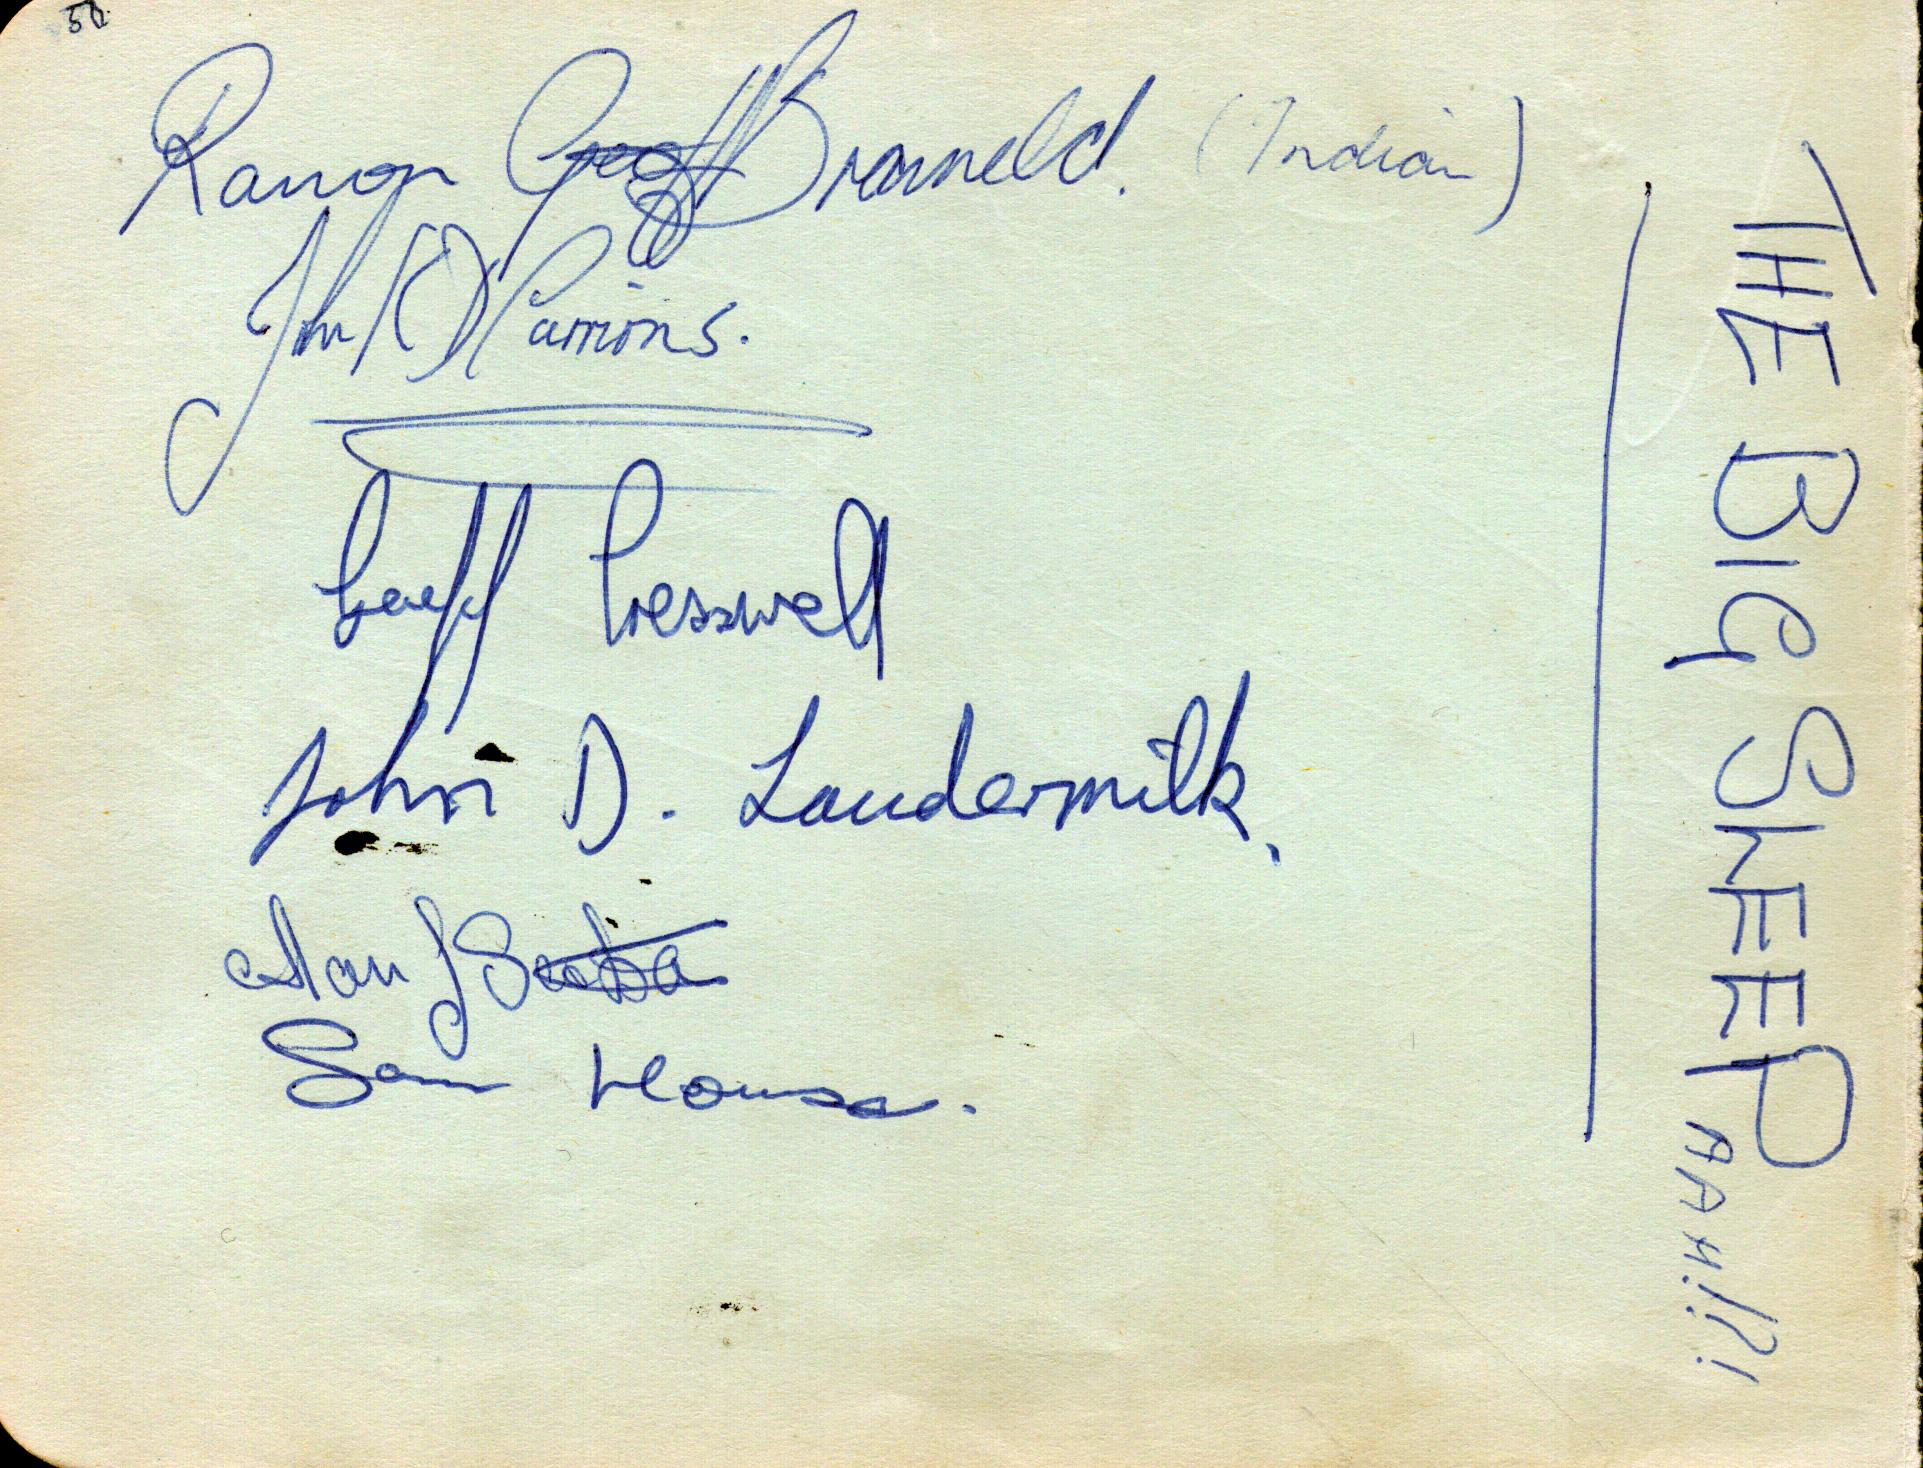 50
Ramon Geoff Brameld. (Indian)
John K D Parrions.
Geoff Presswell
John D. Loudermilk.
Alan J
Sam House.
THE BIG SLEEP
AAH!!?!